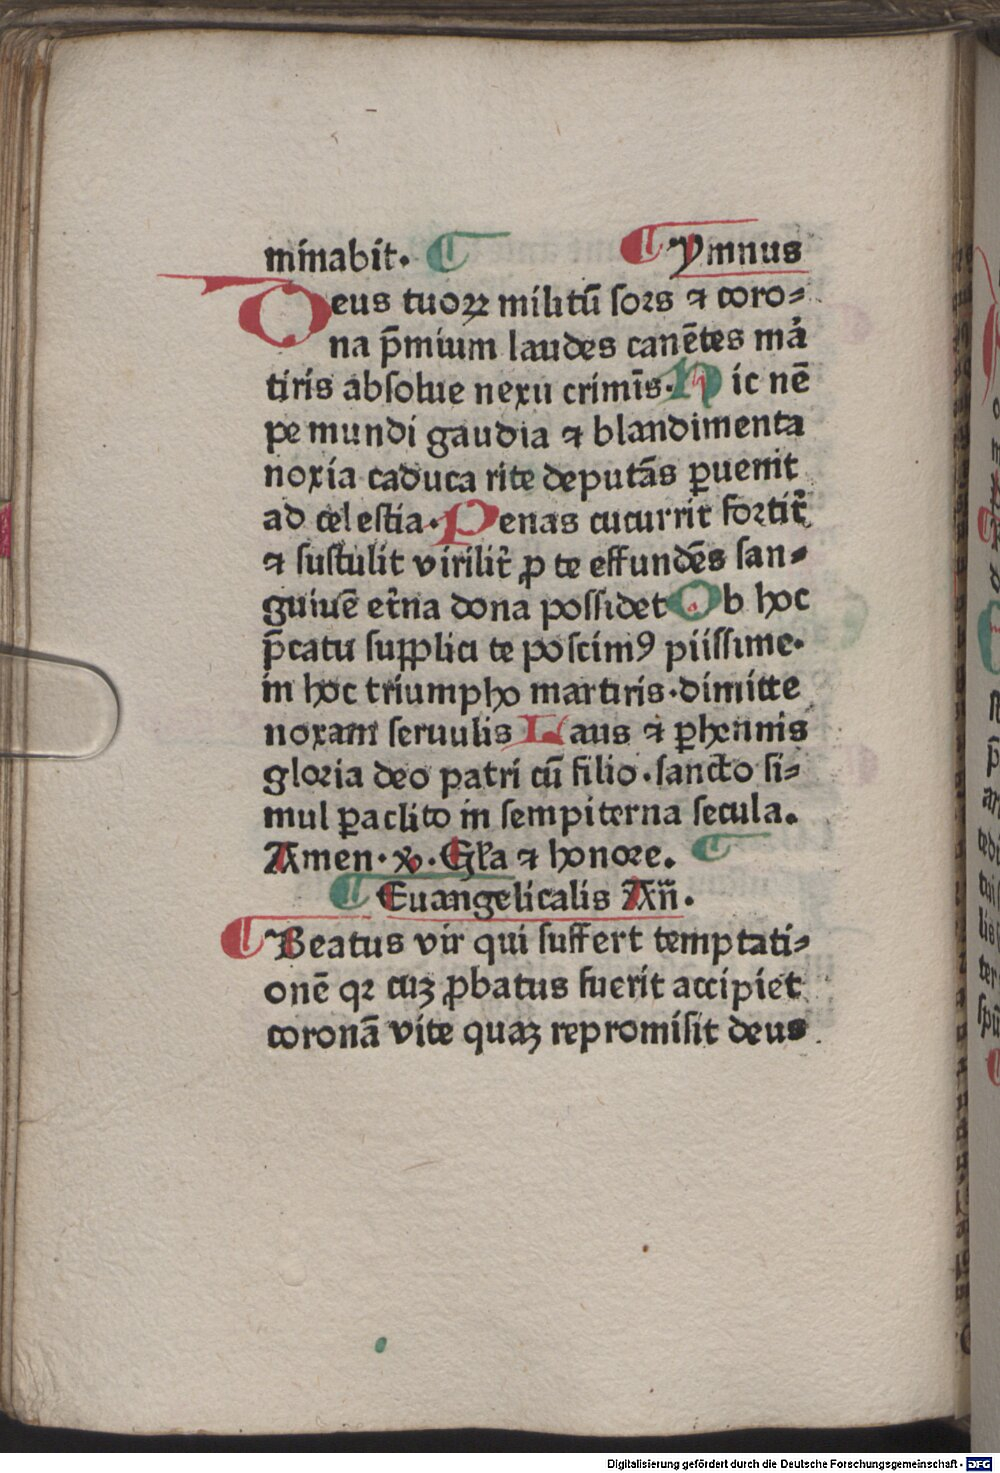 minabit. Ymnus
Deus tuoꝝ militū sors ⁊ coro⸗
na p̄mium laudes canētes mar̉
tiris absolue nexu crimīs. Hic nē
pe mundi gaudia ⁊ blandimenta
noxia caduca rite deputās ꝑuenit
ad celestia. Penas cucurrit fortit̉
⁊ sustulit virilit̉ ꝓ te effundēs san⸗
guinē et̉na dona possidet Ob hoc
p̄catu supplici te poscimꝰ piissime.
in hoc triumpho martiris. dimitte
noxam seruulis Laus ⁊ ꝑhennis
gloria deo patri cū filio. sancto si⸗
mul ꝑaclito in sempiterna secula.
Amen. ꝟ. Gl̄a ⁊ honore.
Euangelicalis Añ.
Beatus vir qui suffert temptati⸗
onē qꝛ cuꝫ ꝓbatus fuerit accipiet
coronā vite quaꝫ repromisit deus
Digitalisierung gefördert durch die Deutsche Forschungsgemeinschaft - DFG